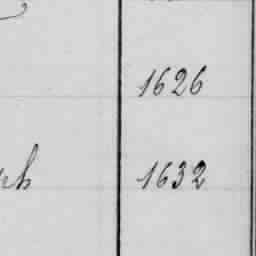 1626
1632